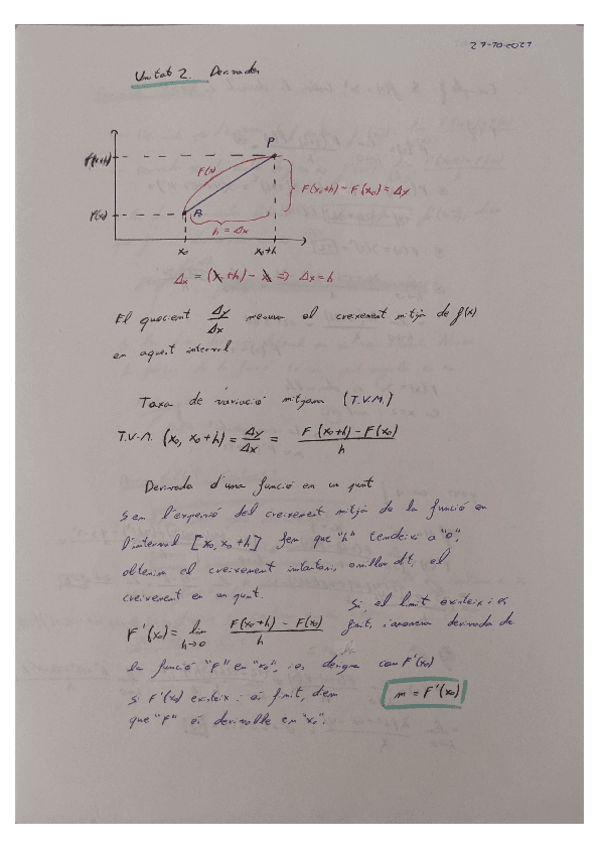 27-10-2021
Unitat 2. Derivades
P
F(x)
F(x₀+h)
F(x₀+h) - F(x₀) = Δy
F(x₀)
P₀
h = Δx
x₀ x₀+h
Δx = (x₀ + h) - x₀ => Δx = h
El quocient Δy/Δx mesura el creixement mitjà de f(x)
en aquest interval
Taxa de variació mitjana (T.V.M.)
T.V.M. (x₀, x₀+h) = Δy/Δx = (F(x₀+h) - F(x₀))/h
Derivada d'una funció en un punt
Si en l'expressió del creixement mitjà de la funció en
l'interval [x₀, x₀+h] fem que "h" tendeixi a "0",
obtenim el creixement instantani, o millor dit, el
creixement en un punt.
Si el límit existeix i és
F'(x₀) = lim h→0 (F(x₀+h) - F(x₀))/h
finit, s'anomena derivada de
la funció "F" en "x₀", i es designa com F'(x₀)
si F'(x₀) existeix i és finit, diem
m = F'(x₀)
que "F" és derivable en "x₀".